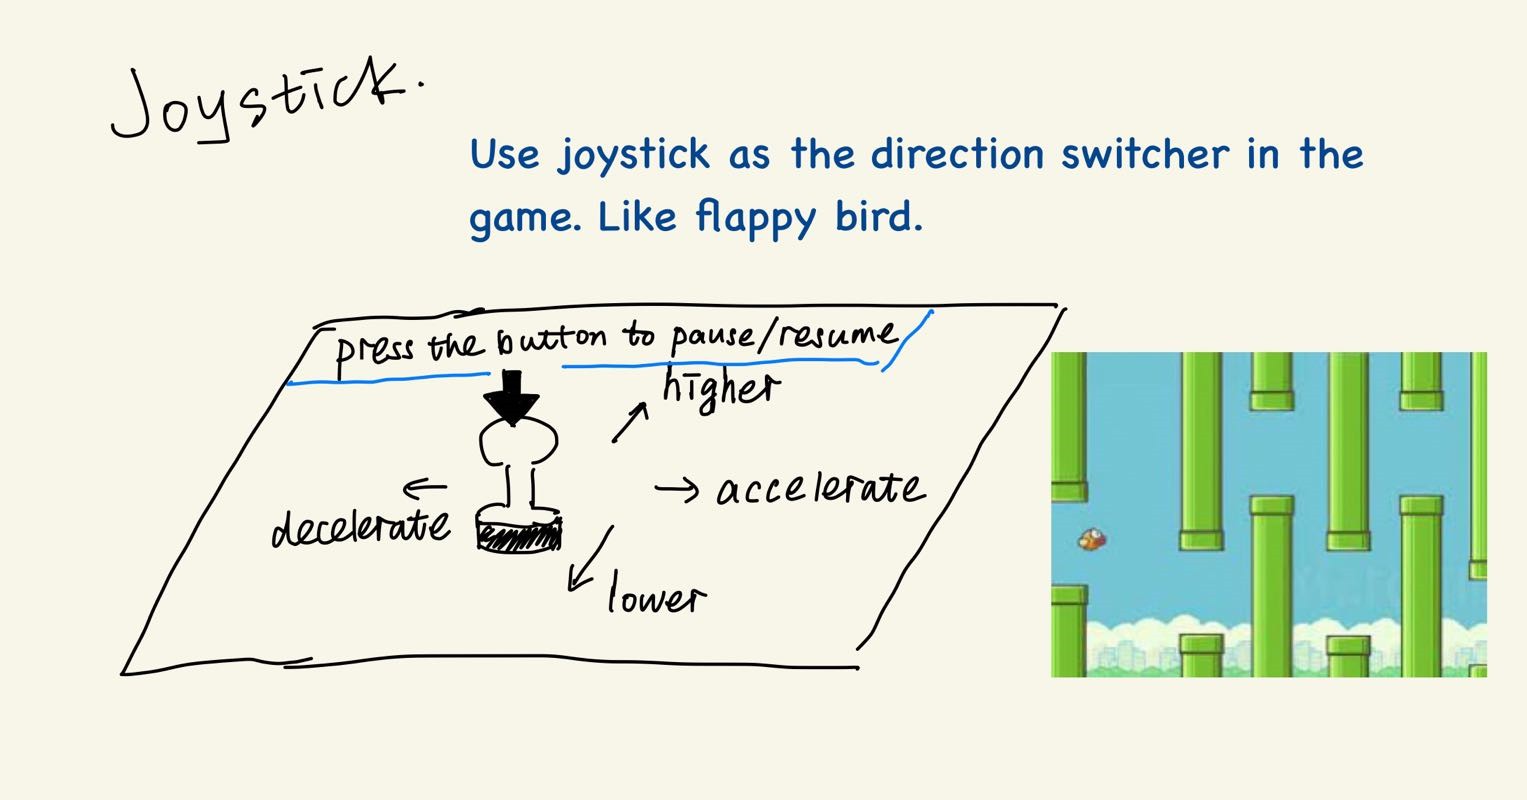 Joystick.
Use joystick as the direction switcher in the
game. Like flappy bird.
press the button to pause/resume
higher
accelerate
decelerate
lower